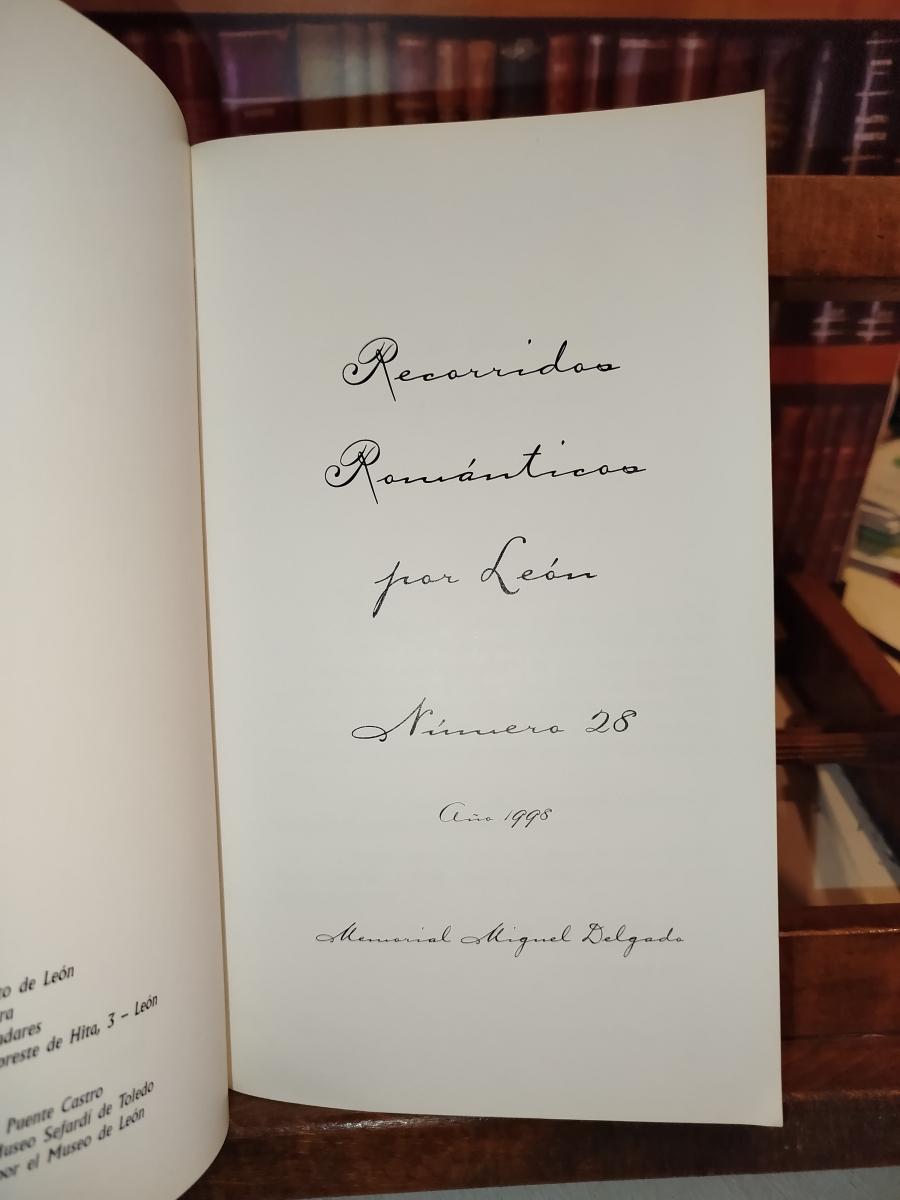 to de León
ra
adares
preste de Hita, 3 – León
Puente Castro
Museo Sefardí de Toledo
por el Museo de León
Recorridos
Románticos
por León
Número 28
Año 1998
Memorial Miguel Delgado